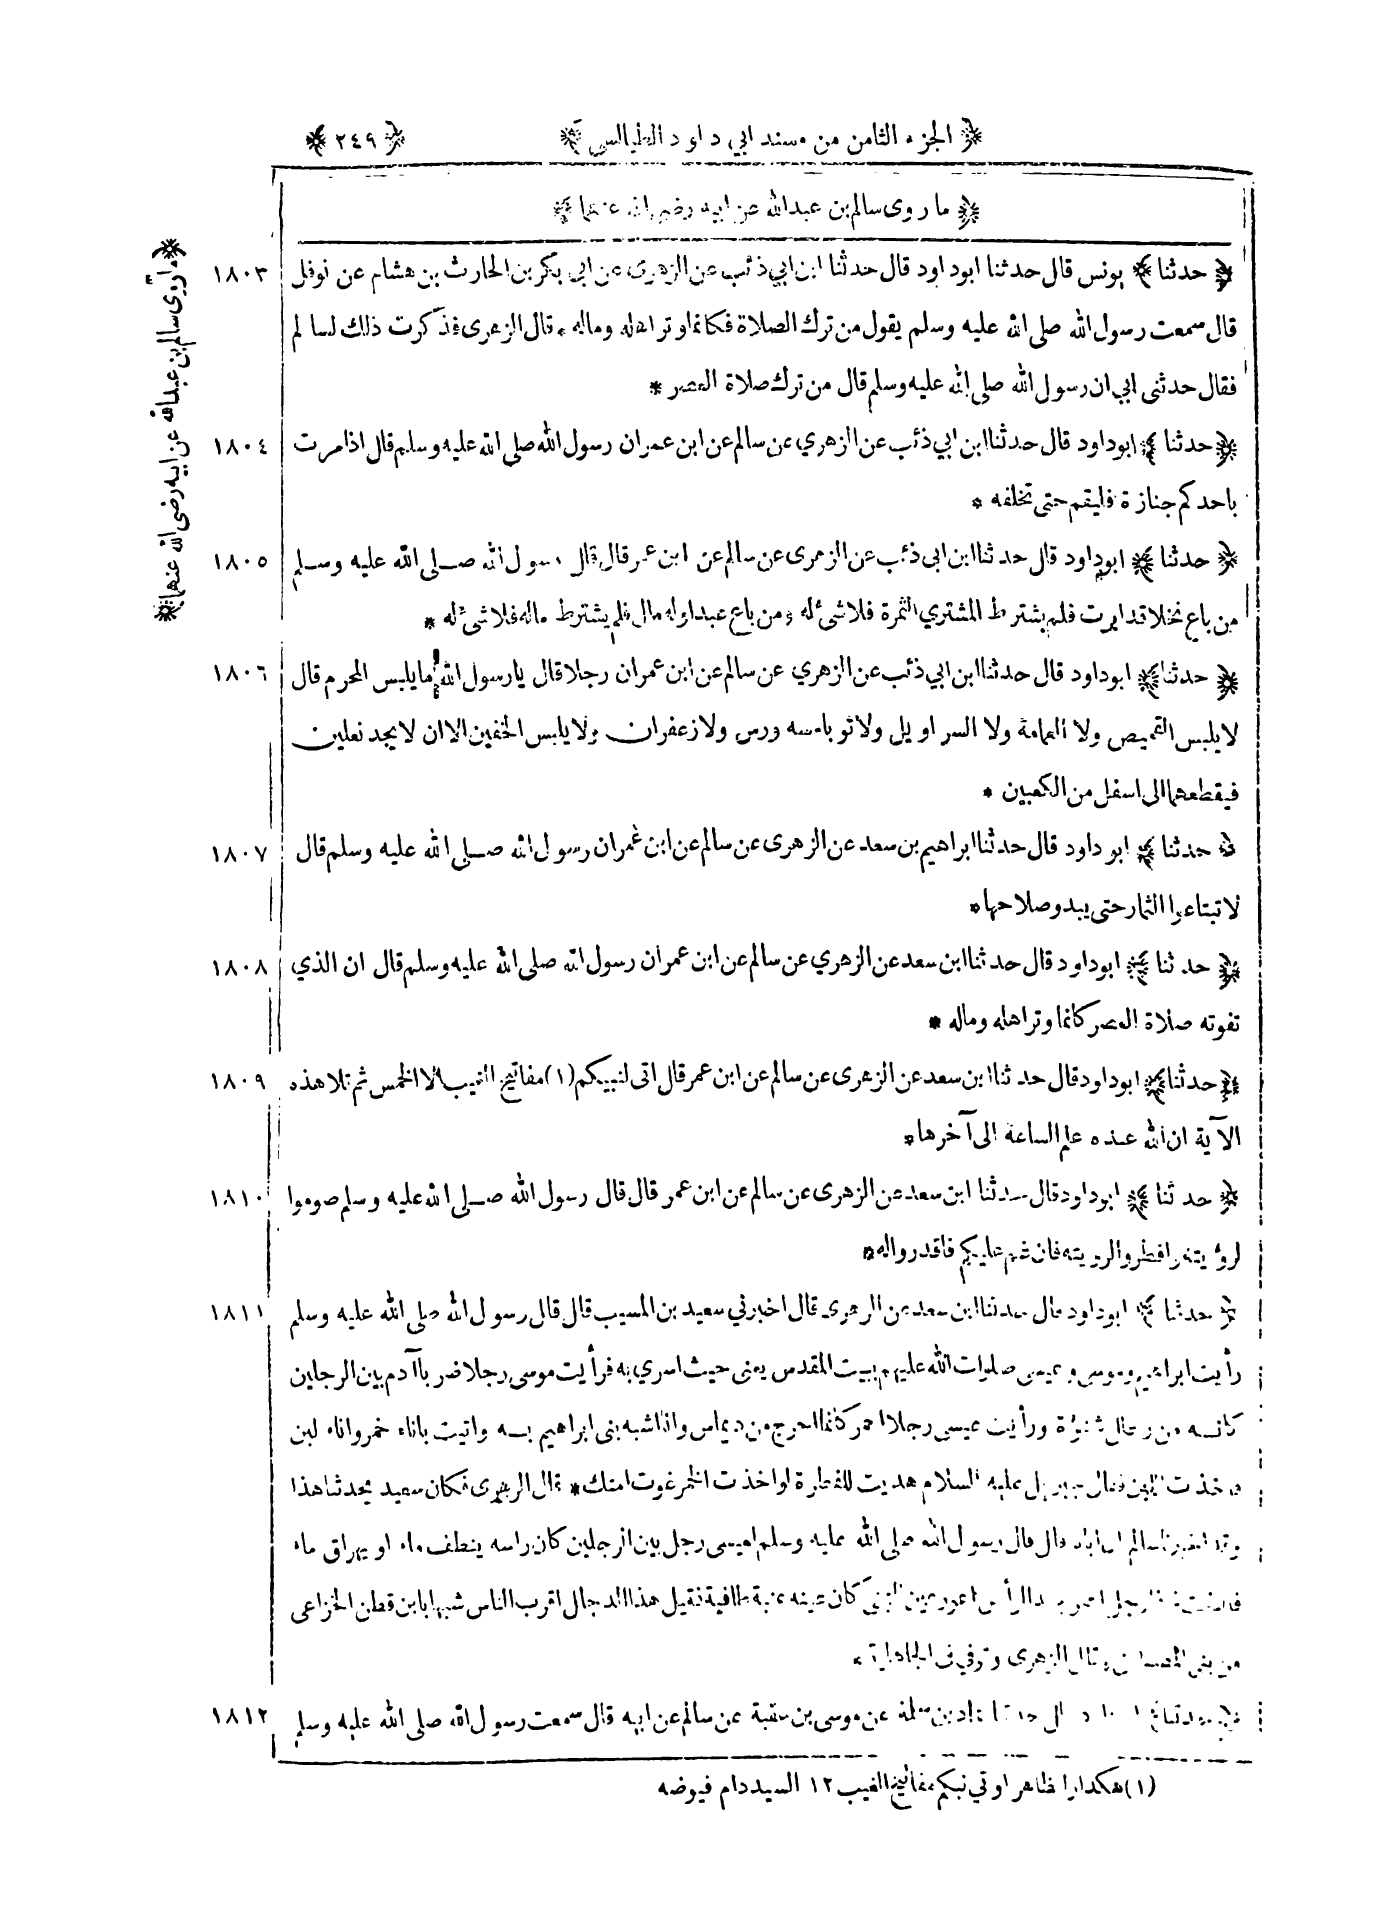 ﴿ الجزء الثامن من مسند ابي داود الطيالسي ﴾ ﴿ ٢٤٩ ﴾
﴿ ما روى سالم بن عبدالله عن ابيه رضى الله عنهما ﴾
﴿ ما روى سالم بن عبدالله عن ابيه رضى الله عنهما ﴾
١٨٠٣ ﴿ حدثنا ﴾ يونس قال حدثنا ابوداود قال حدثنا ابن ابي ذئب عن الزهرى عن ابي بكر بن الحارث بن هشام عن نوفل
قال سمعت رسول الله صلى الله عليه وسلم يقول من ترك الصلاة فكانما وتر اهله وماله * قال الزهرى فذكرت ذلك لسالم
فقال حدثنى ابي ان رسول الله صلى الله عليه وسلم قال من ترك صلاة العصر *
١٨٠٤ ﴿ حدثنا ﴾ ابوداود قال حدثنا ابن ابي ذئب عن الزهري عن سالم عن ابن عمر ان رسول الله صلى الله عليه وسلم قال اذا مرت
باحدكم جنازة فليقم حتى تخلفه *
١٨٠٥ ﴿ حدثنا ﴾ ابوداود قال حدثنا ابن ابي ذئب عن الزهرى عن سالم عن ابن عمر قال قال رسول الله صلى الله عليه وسلم
من باع نخلا قد ابرت فلم يشترط المشتري الثمرة فلا شئ له ومن باع عبدا وله مال فلم يشترط ماله فلا شئ له *
١٨٠٦ ﴿ حدثنا ﴾ ابوداود قال حدثنا ابن ابي ذئب عن الزهري عن سالم عن ابن عمر ان رجلا قال يا رسول الله ما يلبس المحرم قال
لا يلبس القميص ولا العمامة ولا السراويل ولا ثوبا مسه ورس ولا زعفران ولا يلبس الخفين الا ان لا يجد نعلين
فيقطعهما الى اسفل من الكعبين *
١٨٠٧ ﴿ حدثنا ﴾ ابو داود قال حدثنا ابراهيم بن سعد عن الزهرى عن سالم عن ابن عمر ان رسول الله صلى الله عليه وسلم قال
لا تبتاعوا الثمار حتى يبدو صلاحها *
١٨٠٨ ﴿ حدثنا ﴾ ابوداود قال حدثنا ابن سعد عن الزهري عن سالم عن ابن عمر ان رسول الله صلى الله عليه وسلم قال ان الذي
تفوته صلاة العصر كانما وتر اهله وماله *
١٨٠٩ ﴿ حدثنا ﴾ ابوداود قال حدثنا ابن سعد عن الزهرى عن سالم عن ابن عمر قال اتى لنبيكم (١) مفاتيح الغيب الا الخمس ثم تلا هذه
الآية ان الله عنده علم الساعة الى آخرها *
١٨١٠ ﴿ حدثنا ﴾ ابوداود قال حدثنا ابن سعد عن الزهرى عن سالم عن ابن عمر قال قال رسول الله صلى الله عليه وسلم صوموا
لرؤيته وافطروا لرؤيته فان غم عليكم فاقدروا له *
١٨١١ ﴿ حدثنا ﴾ ابوداود قال حدثنا ابن سعد عن الزهرى قال اخبرني سعيد بن المسيب قال قال رسول الله صلى الله عليه وسلم
رأيت ابراهيم وموسى وعيسى صلوات الله عليهم ببيت المقدس يعنى حيث اسري به فرأيت موسى رجلا ضربا آدم بين الرجلين
كانه من رجال شنوءة ورأيت عيسى رجلا احمر كانما اخرج من ديماس وانا اشبه بنى ابراهيم به واتيت باناء خمر واناء لبن
فاخذت اللبن فقال جبريل عليه السلام هديت للفطرة لو اخذت الخمر غوت امتك * قال الزهرى فكان سعيد يحدثنا هذا
سالم ان اباه قال قال رسول الله صلى الله عليه وسلم لعيسى رجل بين الرجلين كان راسه ينطف ماء او يهراق ماء
فالتفت رجل احمر جعد الرأس اعور عين اليمنى كان عينه عنبة طافية فقيل هذا الدجال اقرب الناس شبها بابن قطن الخزاعى
من بنى المصطلق قال الزهرى وتوفي فى الجاهلية *
١٨١٢ حماد بن سلمة عن موسى بن عقبة عن سالم عن ابيه قال سمعت رسول الله صلى الله عليه وسلم
(١) هكذا والظاهر اوتي نبيكم مفاتيح الغيب ١٢ السيد دام فيوضه